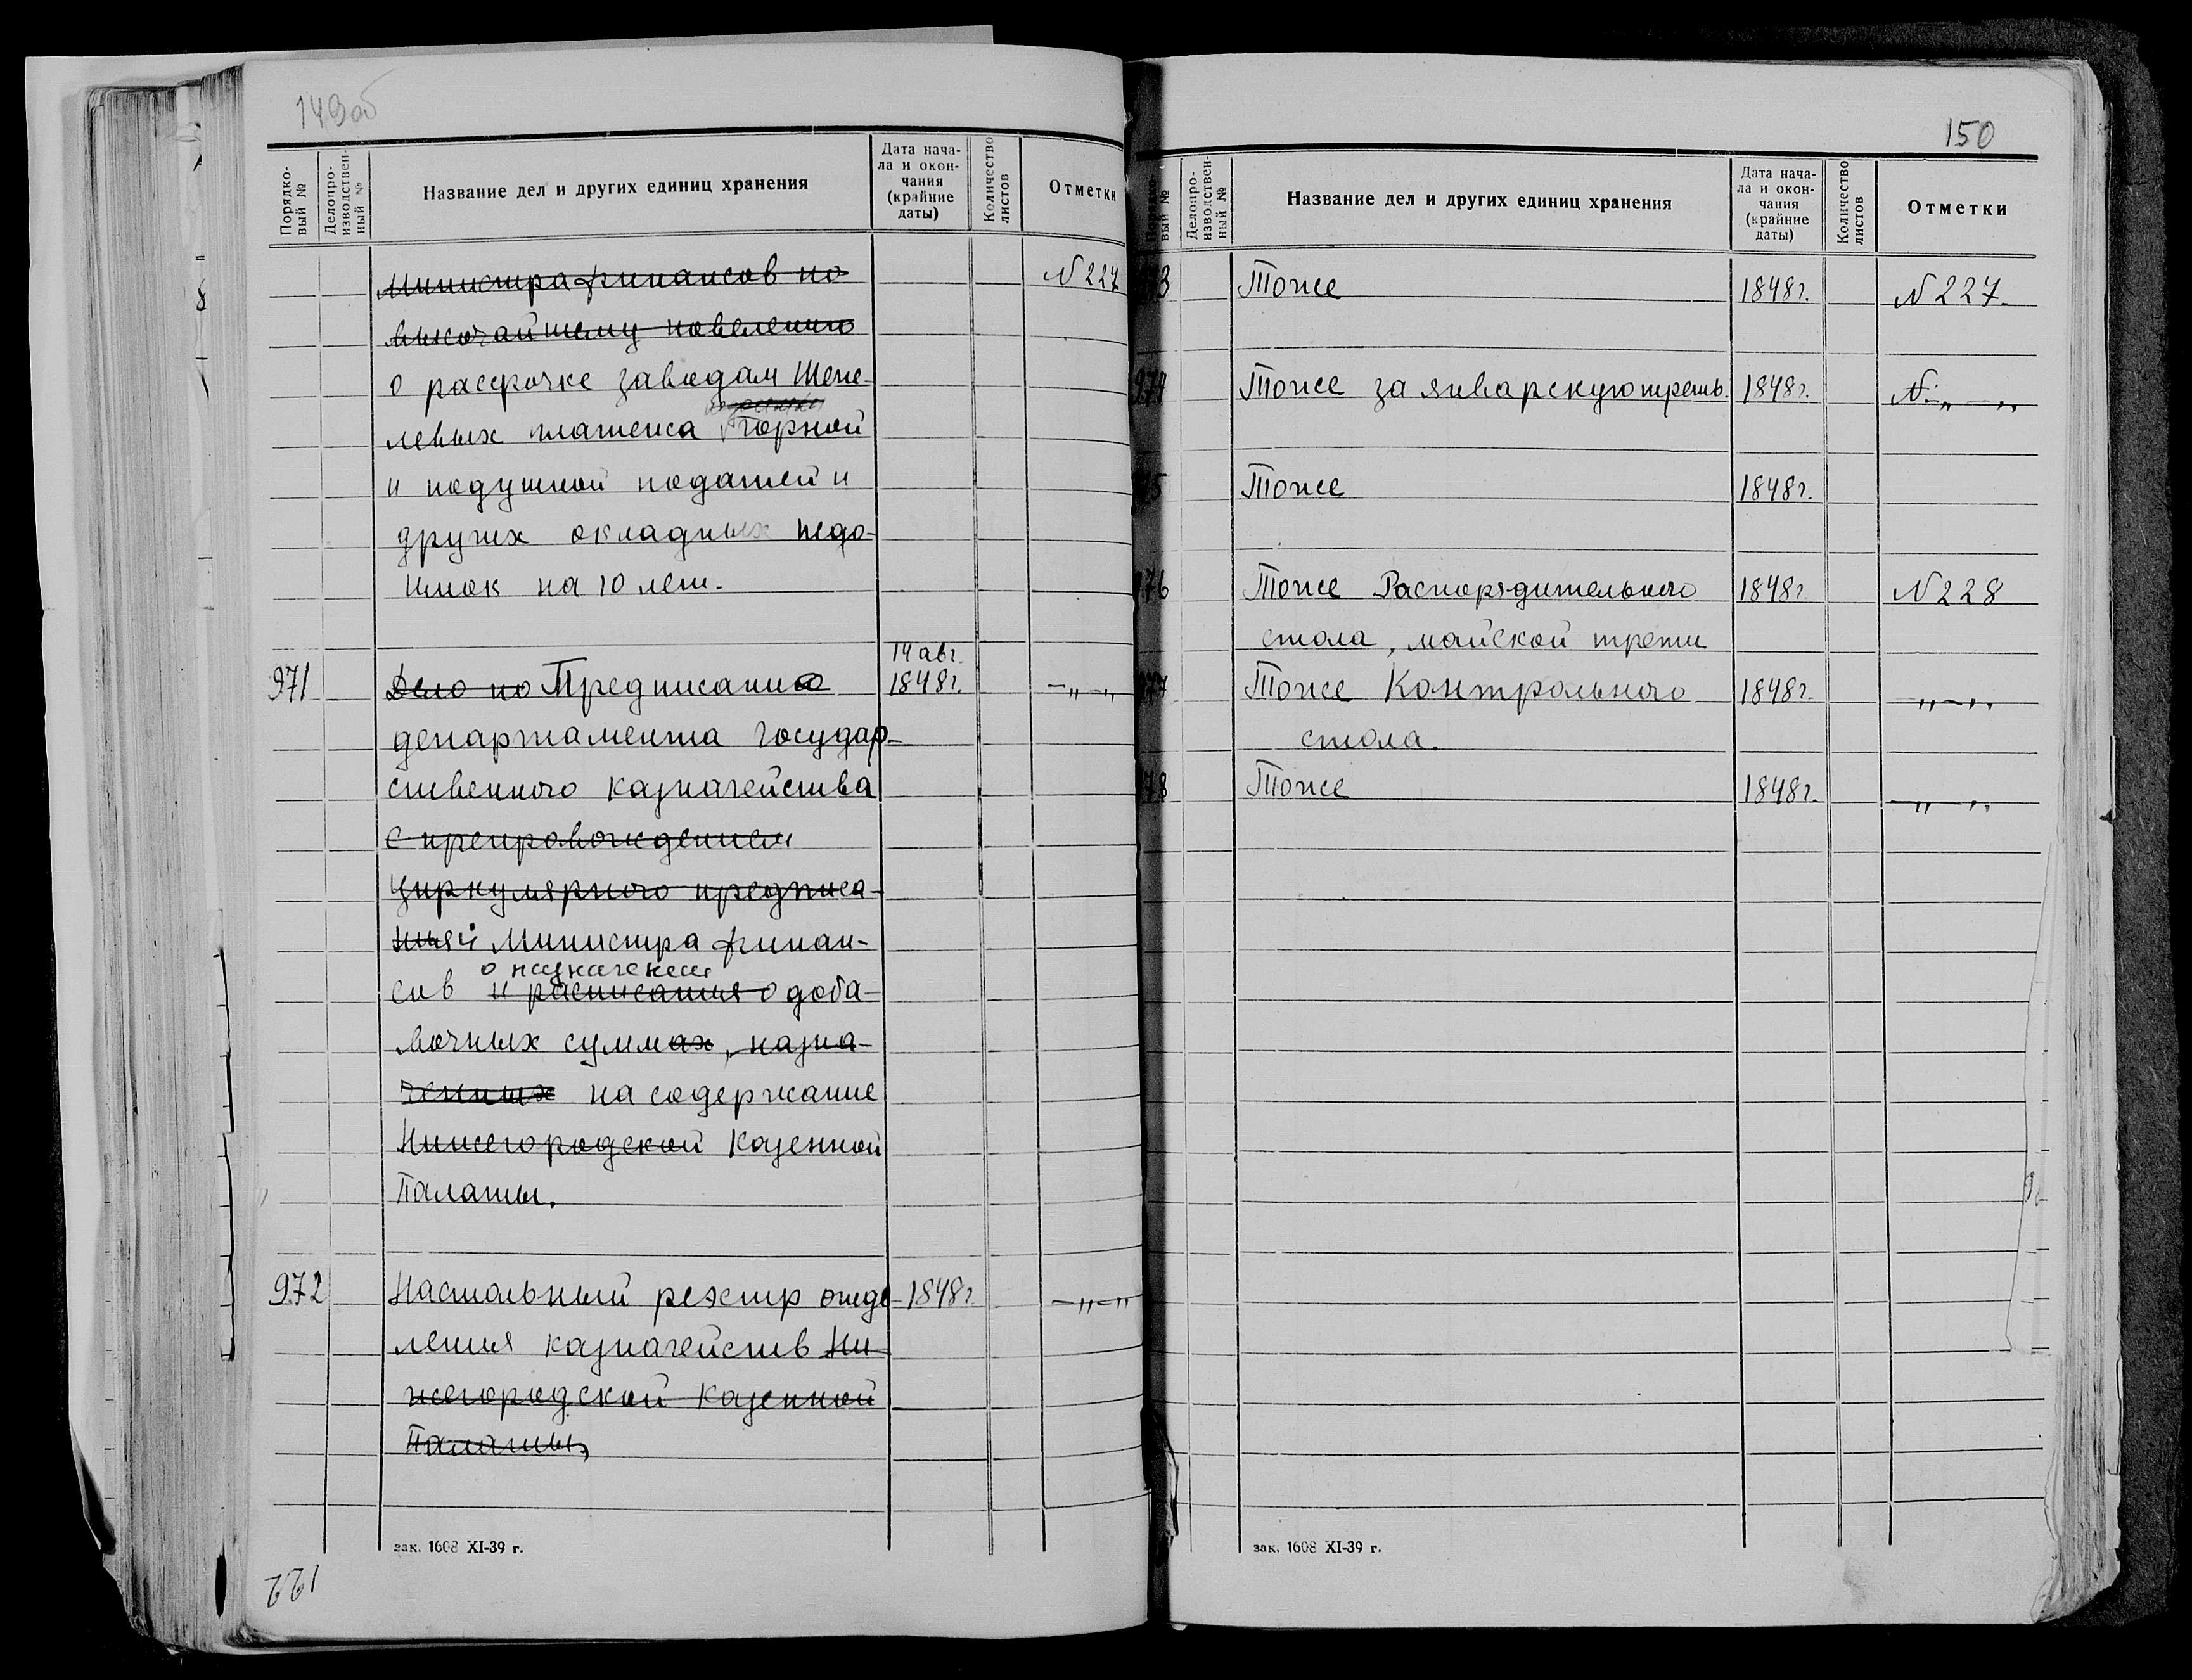 149об
Порядко-
вый №
Делопро-
изводствен-
ный №
Название дел и других единиц хранения
Дата нача-
ла и окон-
чания
(крайние
даты)
Количество
листов
Отметки
Министра финансов по
N 227
высочайшему повелению
о рассрочке заводам Шепе-
левых платежа горной
и подушной податей и
других окладных недо-
имок на 10 лет.
14 авг.
971 Дело по Предписанию 1848г. -„-„
департамента государ-
ственного казначейства
с препровождением
циркулярного предписа-
ния Министра финан-
о назначении
сов и расписания о доба-
вочных суммах, назна-
ченных на содержание
Нижегородской Казенной
Палаты.
972 Настольный реэстр отде- 1848г. -„-„
ления казначейств Ни-
жегородской Казенной
Палаты,
зак. 1608 XI-39 г.
122
150
вый №
Делопро-
изводствен-
ный №
Название дел и других единиц хранения
Дата нача-
ла и окон-
чания
(крайние
даты)
Количество
листов
Отметки
3 Тоже 1848г. N 227.
974 Тоже за январскую треть. 1848г. N-„-„
5 Тоже 1848г.
76 Тоже Распорядительного 1848г. N 228
стола, майской трети
77 Тоже Контрольного 1848г. -„-„
стола.
78 Тоже 1848г. -„-„
зак. 1608 XI-39 г.